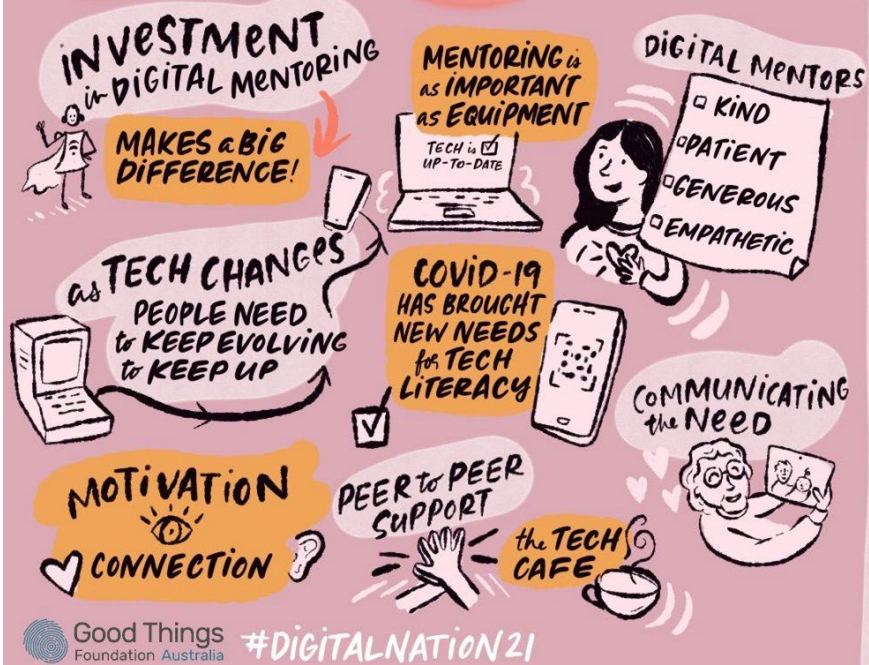 INVESTMENT
in DIGITAL MENTORING
MAKES a BIG
DIFFERENCE!
MENTORING is
as IMPORTANT
as EQUIPMENT
TECH is ☑
UP-TO-DATE
DIGITAL MENTORS
KIND
PATIENT
GENEROUS
EMPATHETIC
as TECH CHANGES
PEOPLE NEED
to KEEP EVOLVING
to KEEP UP
COVID-19
HAS BROUGHT
NEW NEEDS
for TECH
LITERACY
COMMUNICATING
the NEED
MOTIVATION
CONNECTION
PEER to PEER
SUPPORT
the TECH
CAFE
Good Things
Foundation Australia
#DIGITALNATION21